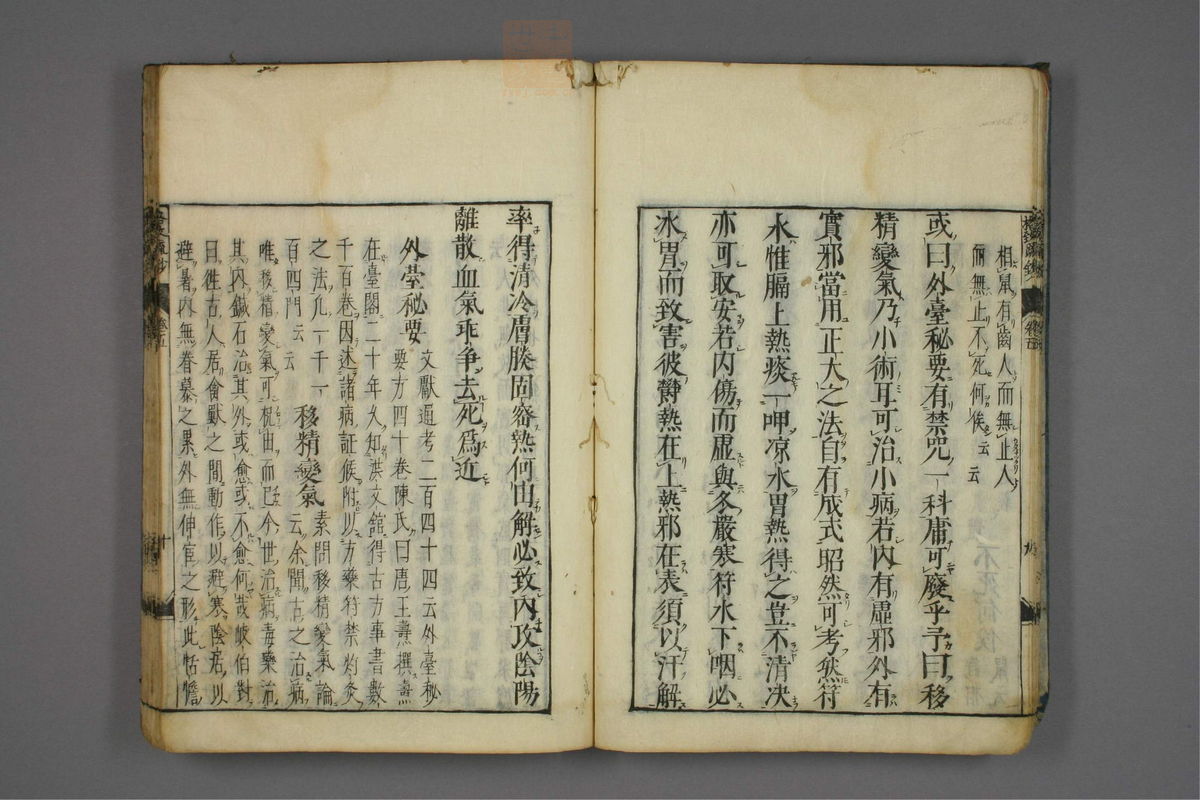 相鼠有齒人而無止人
而無止不死何俟云云
或曰外臺秘要有禁咒一科庸可廢乎予曰移
精變氣乃小術耳可治小病若內有虛邪外有
實邪當用正大之法自有成式昭然可考然符
水惟膈上熱痰一呷凉水胃熱得之豈不清决
亦可取安若内傷而虛與冬嚴寒符水下咽必
冰胃而致害彼欝熱在上熱邪在表須以汗解
率得清冷膚腠固密熱何由解必致内攻陰陽
離散血氣乖争去死爲近
外臺秘要 文獻通考二百四十四云外臺秘
要方四十卷陳氏曰唐王燾撰燾
在臺閣二十年久知洪文館得古方事書數
千百卷因述諸病証候附以方藥符禁灼灸
之法凡一千一
百四門云云 移精變氣 素問移精變氣論
云余聞古之治病
唯移精變氣可祝由而已今世治病毒藥治
其内鍼石治其外或愈或不愈何哉岐伯對
曰徃古人居禽獸之間動作以避寒陰居以
避暑内無眷慕之累外無伸宦之形此恬憺